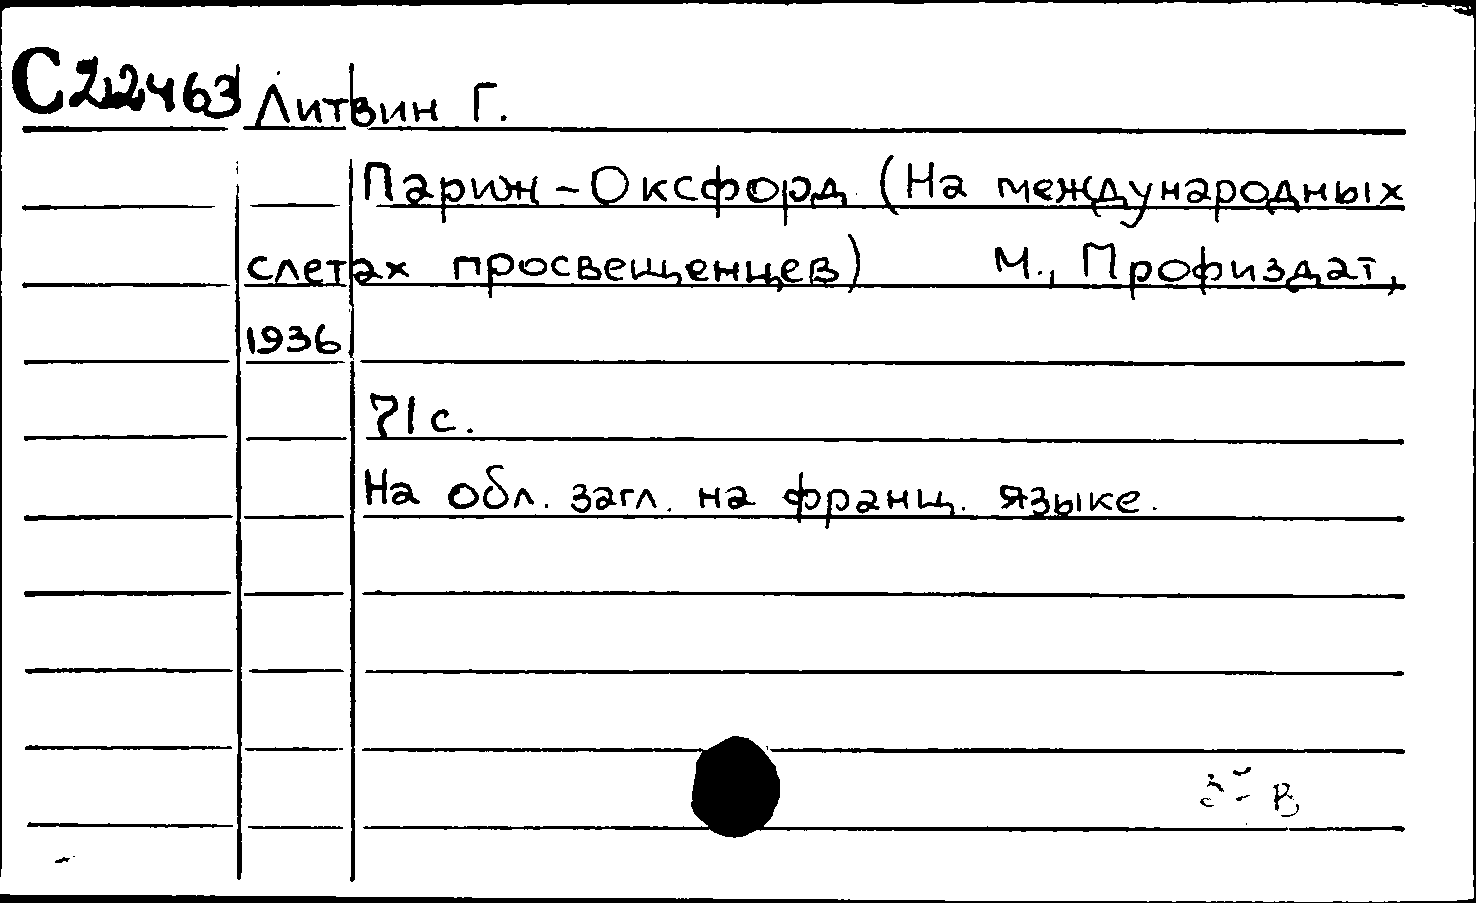 С22463 Литвин Г.
Париж-Оксфорд (На международных
слетах просвещенцев) М., Профиздат,
1936
71 с.
На обл. загл. на франц. языке.